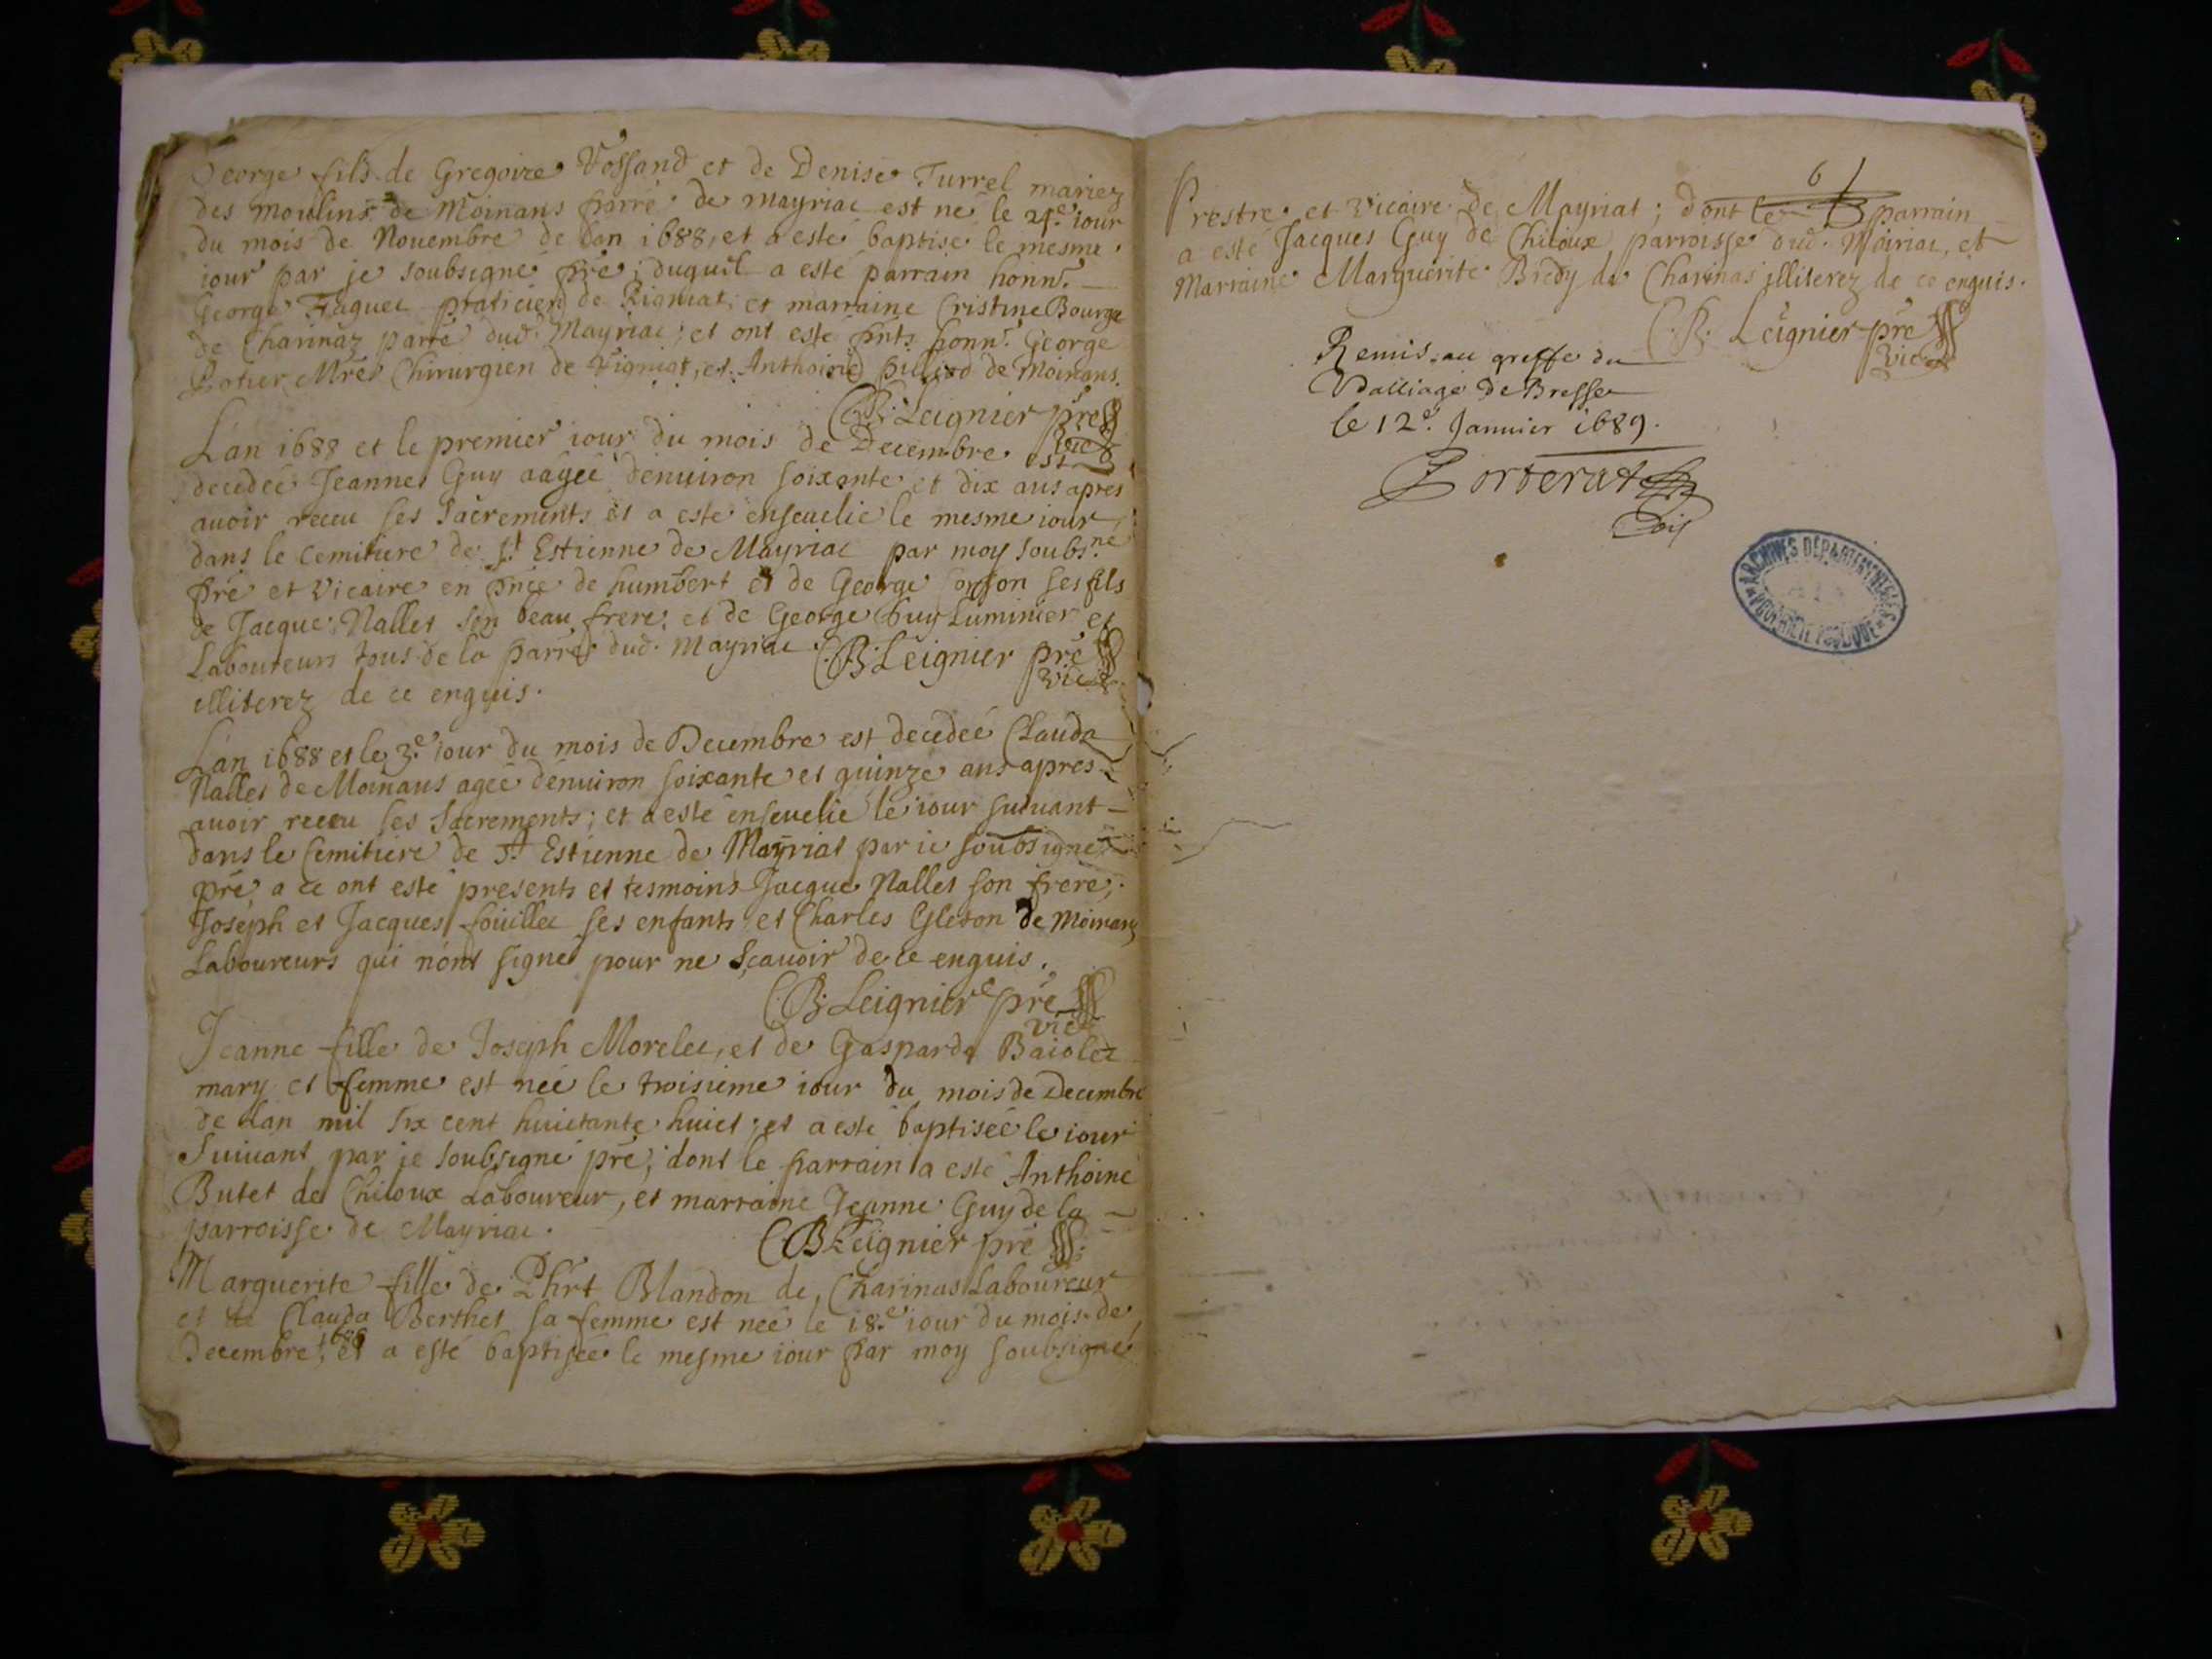 George fils de Gregoire Vossand et de Denise Turrel mariez
des moulins de Moinans parre de Mayriac est né le 24e iour
du mois de Nouembre de lan 1688, et a esté baptisé le mesme
iour par je soubsigné pre; duquel a esté parrain honn.
George Faquet praticien de Rigniat; et marraine Cristine Bourge
de Charinaz parre dud. Mayriac; et ont esté pnts honn. George
Chirurgien de et Anthoine de Moinans.
C.B. Leignier pre vic
L'an 1688 et le premier iour du mois de Decembre est
decedée Jeanne Guy aagee denuiron soixante et dix ans apres
auoir receu ses Sacrements et a esté enseuelie le mesme iour
dans le Cemitiere de St Estienne de Mayriac par moy soubs.né
pre et Vicaire en pnce de humbert et de George ses fils
de Jacque Nallet son beau frere, et de George Guy Luminier et
Laboureurs tous de la parre dud. Mayriac C.B. Leignier pre
illiterez de ce enquis. vic
L'an 1688 et le 3e iour du mois de Decembre est decedeé Clauda
Nallet de Moinans agée denuiron soixante et quinze ans apres
auoir receu ses Sacrements; et a esté enseuelie le iour suiuant
dans le Cemitiere de St Estienne de Mayriat par ie soubsigné
pre, a ce ont esté presents et tesmoins Jacque Nallet son frere,
Joseph et Jacques fouillet ses enfants et Charles Gleton de Moinans
Laboureurs qui nont signé pour ne Sçauoir de ce enquis.
C.B. Leignier pre
vic
Jeanne fille de Joseph Morelet, et de Gasparda Baiolet
mary et femme est neé le troisieme iour du mois de Decembre
de lan mil six cent huictante huict; et a esté baptiseé le iour
Suiuant par je soubsigné pre; dont le parrain a esté Anthoine
Butet de Chiloux Laboureur, et marraine Jeanne Guy de la
parroisse de Mayriac.
C.B Leignier pre
Marguerite fille de Phrt Blandon de Charinas Laboureur
et de Clauda Berthet sa femme est neé le 18e iour du mois de
Decembre, 1688 et a esté baptiseé le mesme iour par moy soubsigné
6
Prestre et Vicaire de Mayriat; dont le parrain
a esté Jacques Guy de Chiloux parroisse dud. Moiriac, et
Marraine Marguerite Bredy de Charinas illiterez de ce enquis.
C.B. Leignier pre
vic
Remis au greffe du
Balliage de Bresse
le 12e. Januier 1689.
ARCHIVES DEPARTEMENTALES